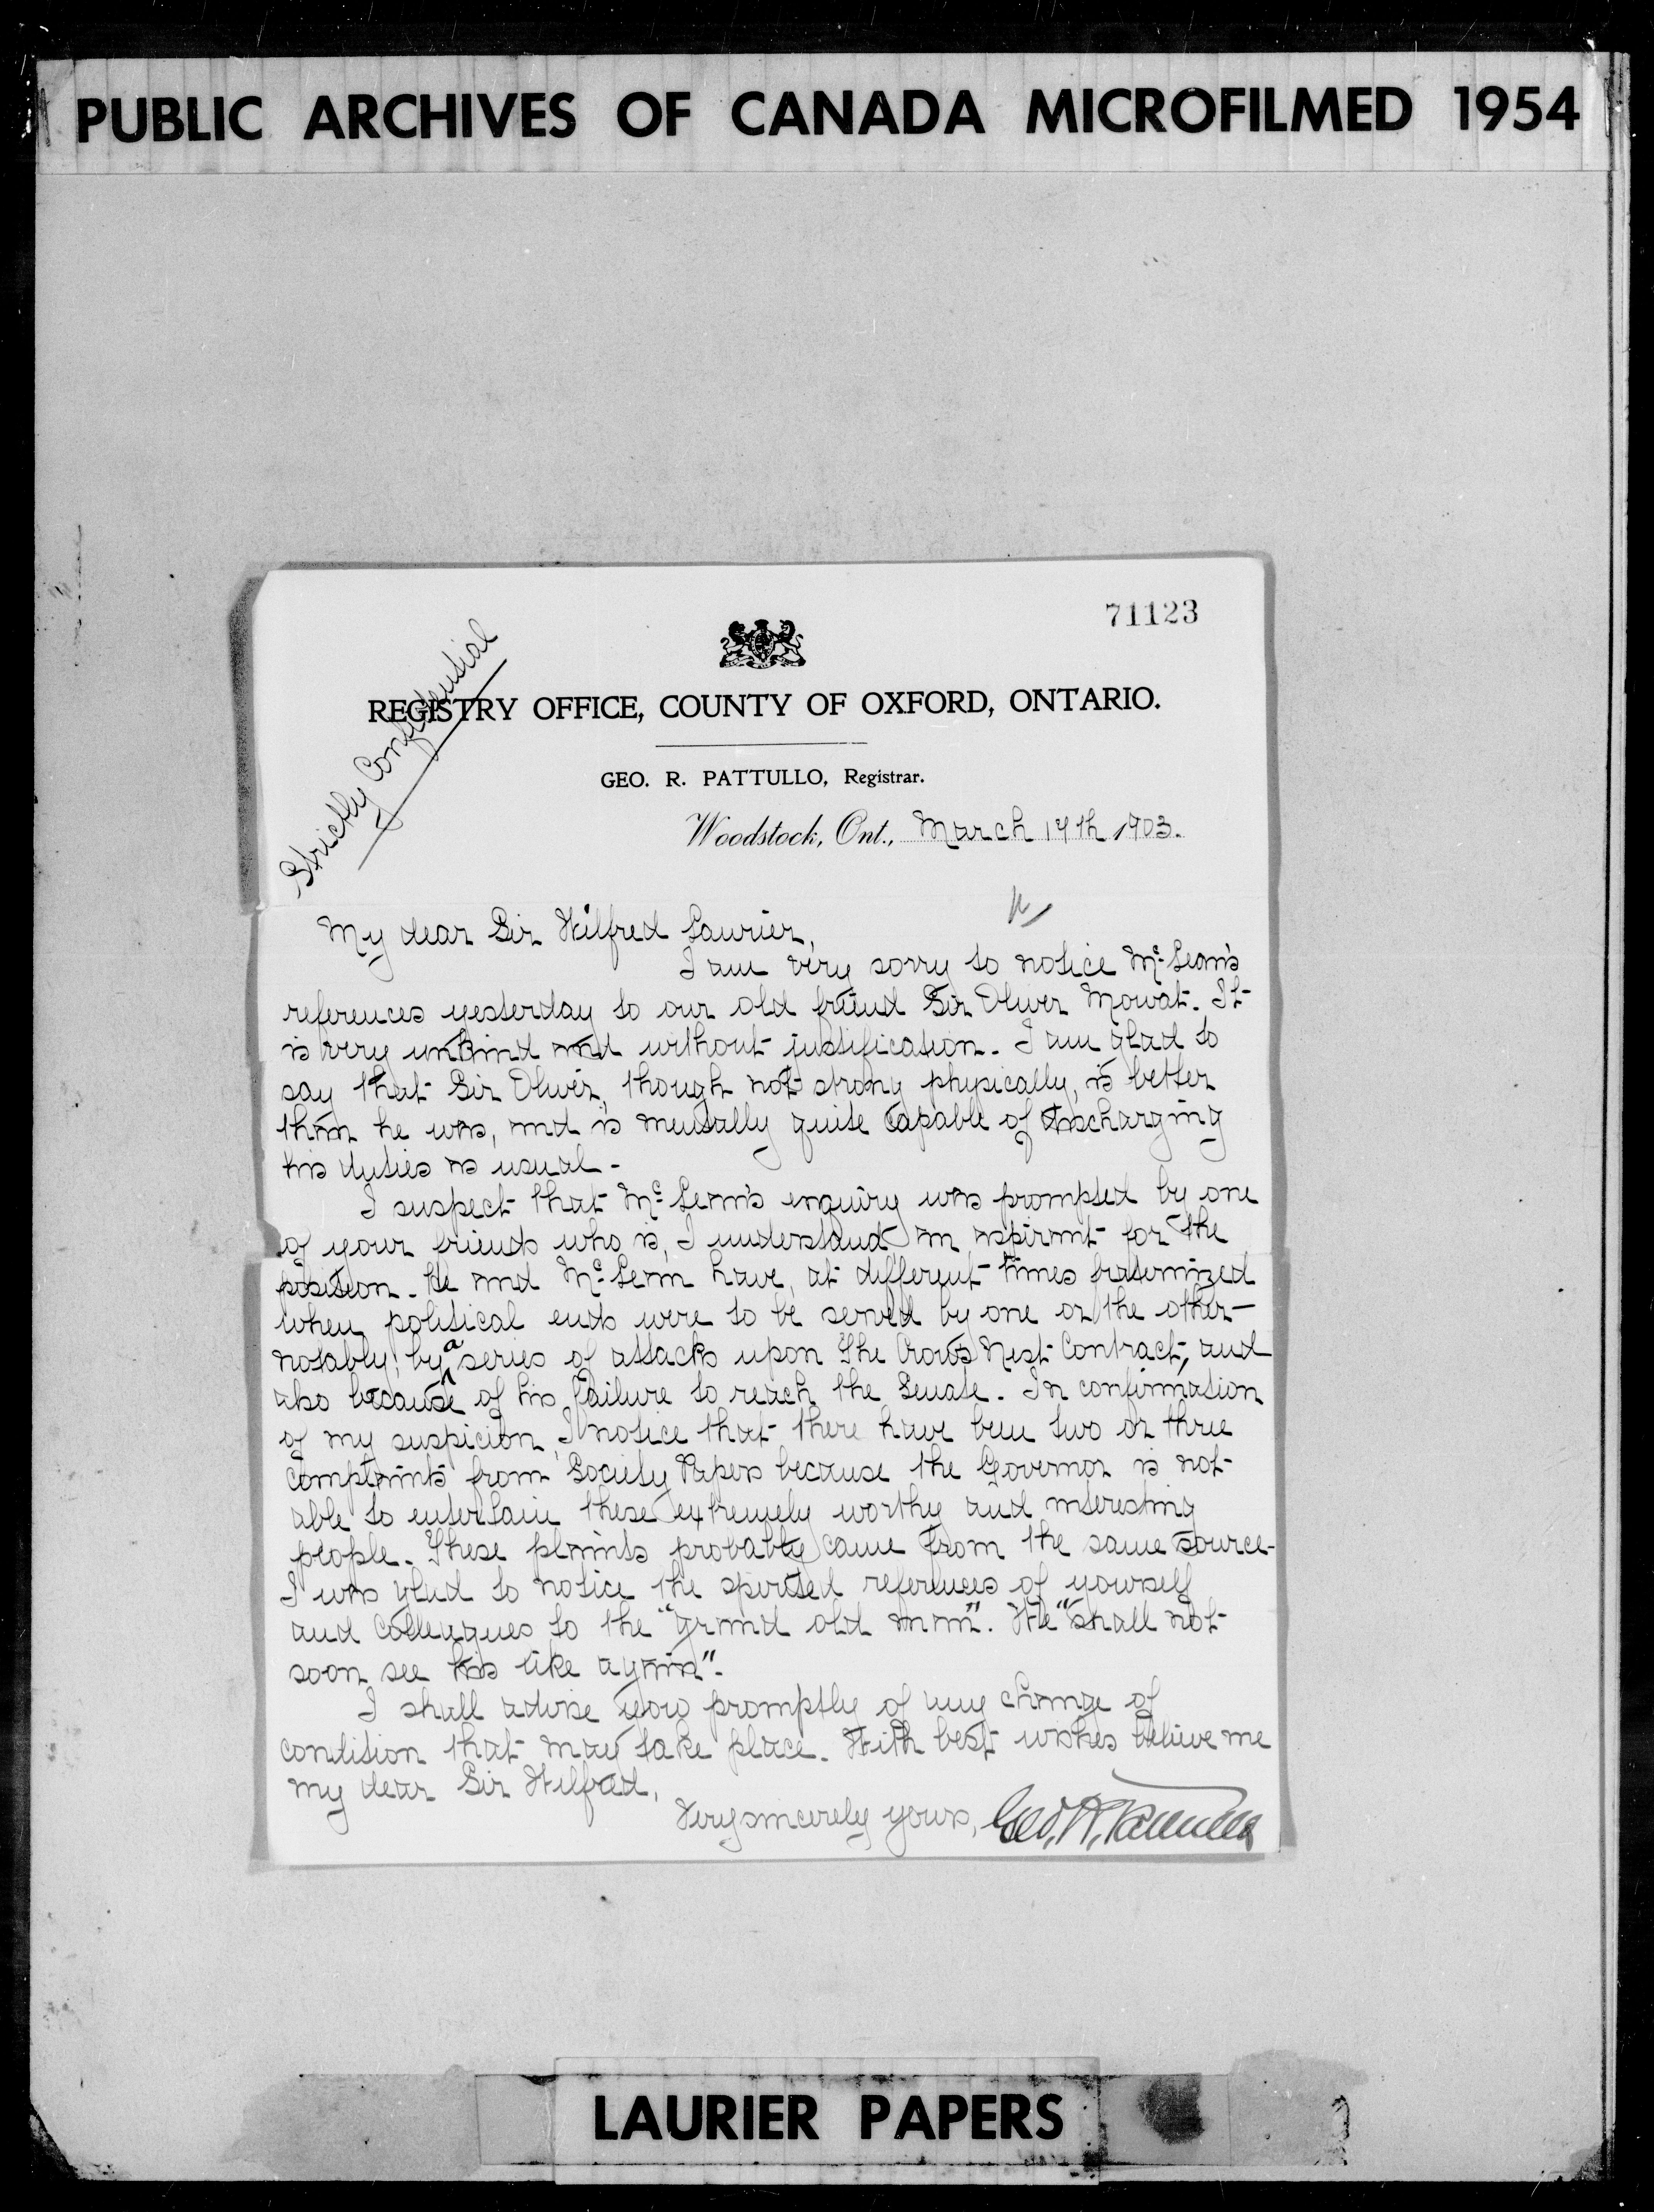 PUBLIC ARCHIVES OF CANADA MICROFILMED 1954
71123
Strictly Confidential
REGISTRY OFFICE, COUNTY OF OXFORD, ONTARIO.
GEO. R. PATTULLO, Registrar.
Woodstock, Ont., March 19th 1903.
My dear Sir Wilfred Laurier,
I am very sorry to notice McLean's
references yesterday to our old friend Sir Oliver Mowat. It
is very unkind and without justification. I am glad to
say that Sir Oliver, though not strong physically, is better
than he was, and is mentally quite capable of discharging
his duties as usual.
I suspect that McLean's enquiry was prompted by one
of your friends who is, I understand an aspirant for the
position. He and McLean have, at different times fraternized
when political ends were to be served by one or the other—
notably, by a series of attacks upon the Crow's Nest Contract, and
also because of his failure to reach the Senate. In confirmation
of my suspicion, I notice that there have been two or three
complaints from Society Papers because the Governor is not
able to entertain these extremely worthy and interesting
people. These plaints probably came from the same source.
I was glad to notice the spirited references of yourself
and colleagues to the "grand old man". We "shall not
soon see his like again".
I shall advise you promptly of any change of
condition that may take place. With best wishes believe me
my dear Sir Wilfred,
Very sincerely yours, Geo. R. Pattullo
LAURIER PAPERS